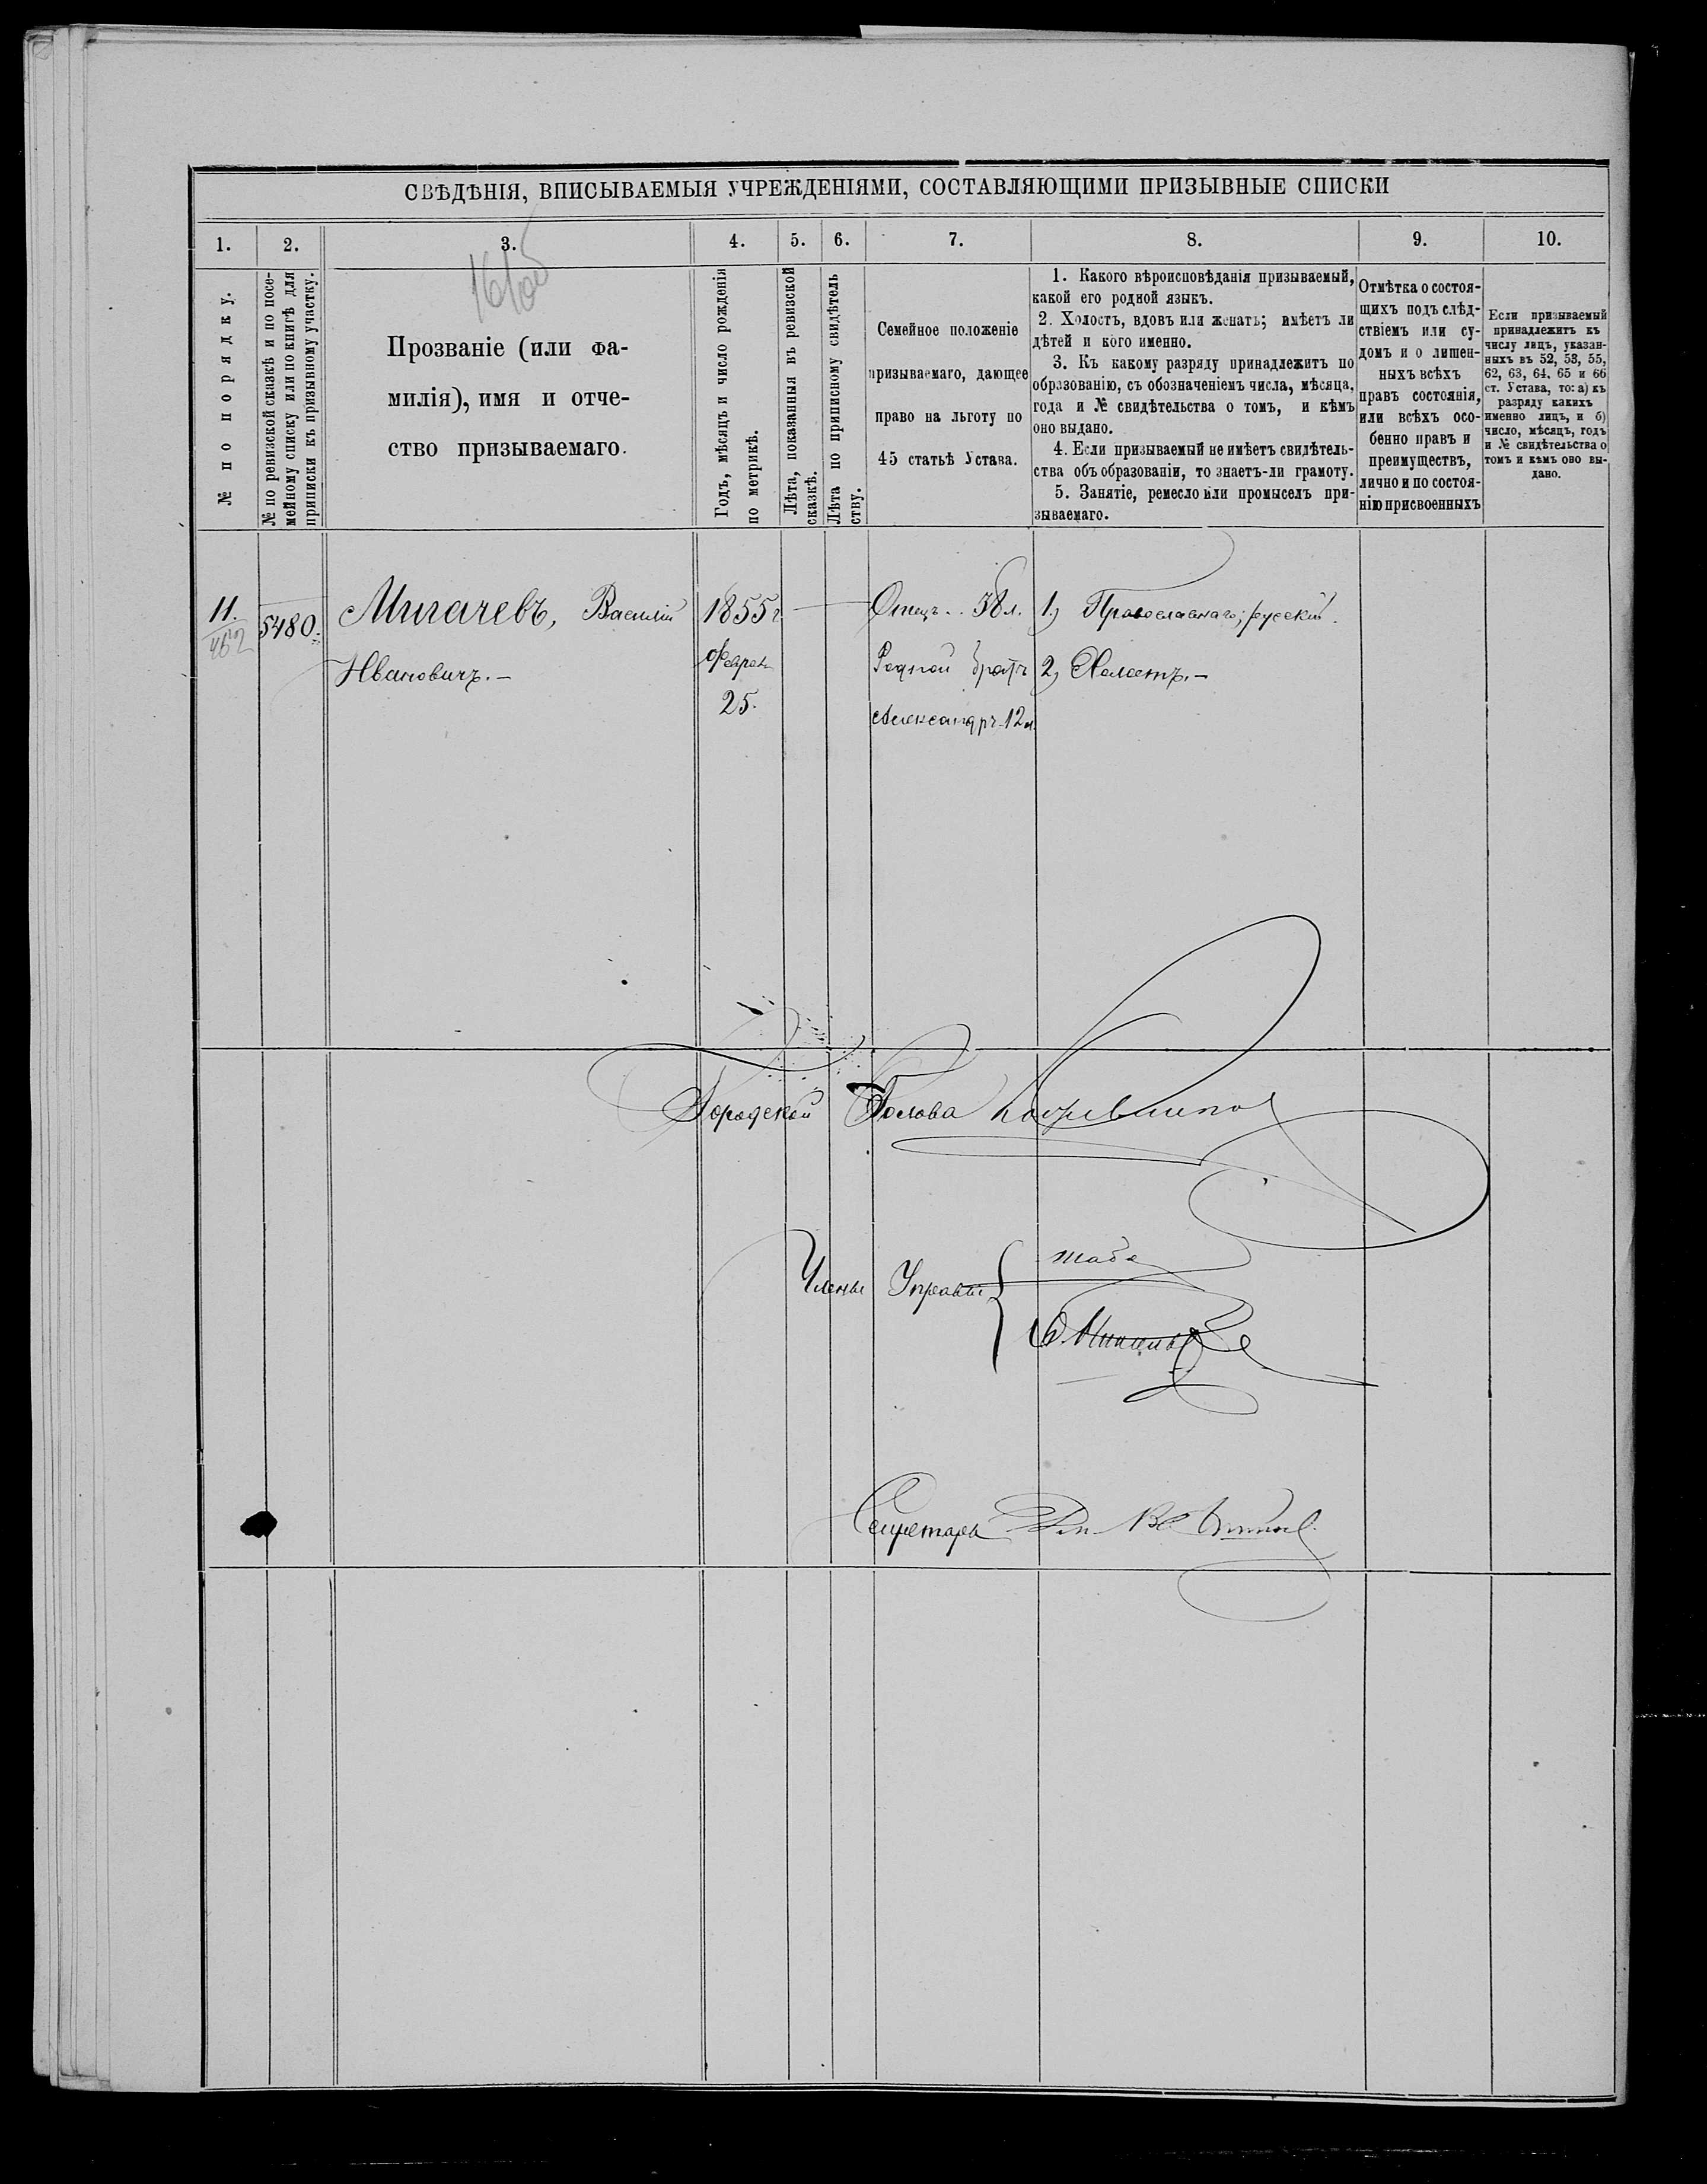 СВѢДѢНІЯ, ВПИСЫВАЕМЫЯ УЧРЕЖДЕНІЯМИ, СОСТАВЛЯЮЩИМИ ПРИЗЫВНЫЕ СПИСКИ
1.
2.
3.
4.
5.
6.
7.
8.
9.
10.
№ по порядку.
№ по ревизской сказкѣ и по посе-
мейному списку или по книгѣ для
приписки къ призывному участку.
Прозваніе (или фа-
милія), имя и отче-
ство призываемаго.
Годъ, мѣсяцъ и число рожденія
по метрикѣ.
Лѣта, показанныя въ ревизской
сказкѣ.
Лѣта по приписному свидѣтель
ству.
Семейное положеніе
призываемаго, дающее
право на льготу по
45 статьѣ Устава.
1. Какого вѣроисповѣданія призываемый,
какой его родной языкъ.
2. Холостъ, вдовъ или женатъ; имѣетъ ли
дѣтей и кого именно.
3. Къ какому разряду принадлежитъ по
образованію, съ обозначеніемъ числа, мѣсяца,
года и № свидѣтельства о томъ, и кѣмъ
оно выдано.
4. Если призываемый не имѣетъ свидѣтель-
ства объ образованіи, то знаетъ-ли грамоту.
5. Занятіе, ремесло или промыселъ при-
зываемаго.
Отмѣтка о состоя-
щихъ подъ слѣд-
ствіемъ или су-
домъ и о лишен-
ныхъ всѣхъ
правъ состоянія,
или всѣхъ осо-
бенно правъ и
преимуществъ,
лично и по состоя-
нію присвоенныхъ
Если призываемый
принадлежитъ къ
числу лицъ, указан-
ныхъ въ 52, 53, 55,
62, 63, 64, 65 и 66
ст. Устава, то: а) къ
разряду какихъ
именно лицъ, и б)
число, мѣсяцъ, годъ
и № свидѣтельства о
томъ и кѣмъ оно вы-
дано.
11.
5480.
Мигачевъ, Василій
Ивановичъ.-
1855г
Февраля
25.
Отецъ.. 58 л.
Родной братъ
Александръ 12 л.
1) Православнаго; русскій.
2) Холостъ.-
Городской Голова
Члены Управы
Секретарь